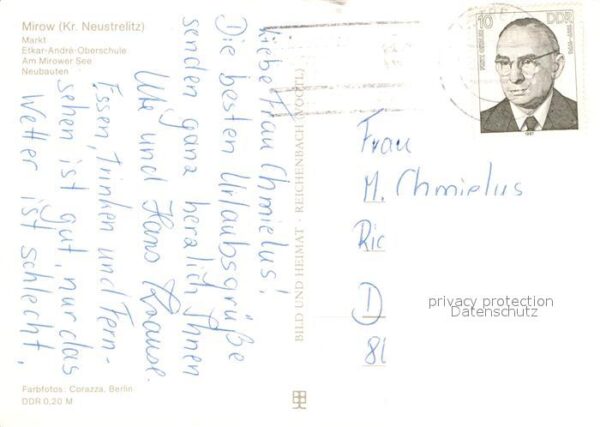 Mirow (Kr. Neustrelitz)
Markt
Etkar-André-Oberschule
Am Mirower See
Neubauten
Liebe Frau Chmielus!
Die besten Urlaubsgrüße
senden ganz herzlich Ihnen
Ute und Hans Krause.
Essen, trinken und Fern-
sehen ist gut, nur das
Wetter ist schlecht.
Farbfotos: Corazza, Berlin
DDR 0,20 M
BILD UND HEIMAT · REICHENBACH (VOGTL)
10 DDR
1987
Frau
M. Chmielus
Ric
D
81
privacy protection
Datenschutz